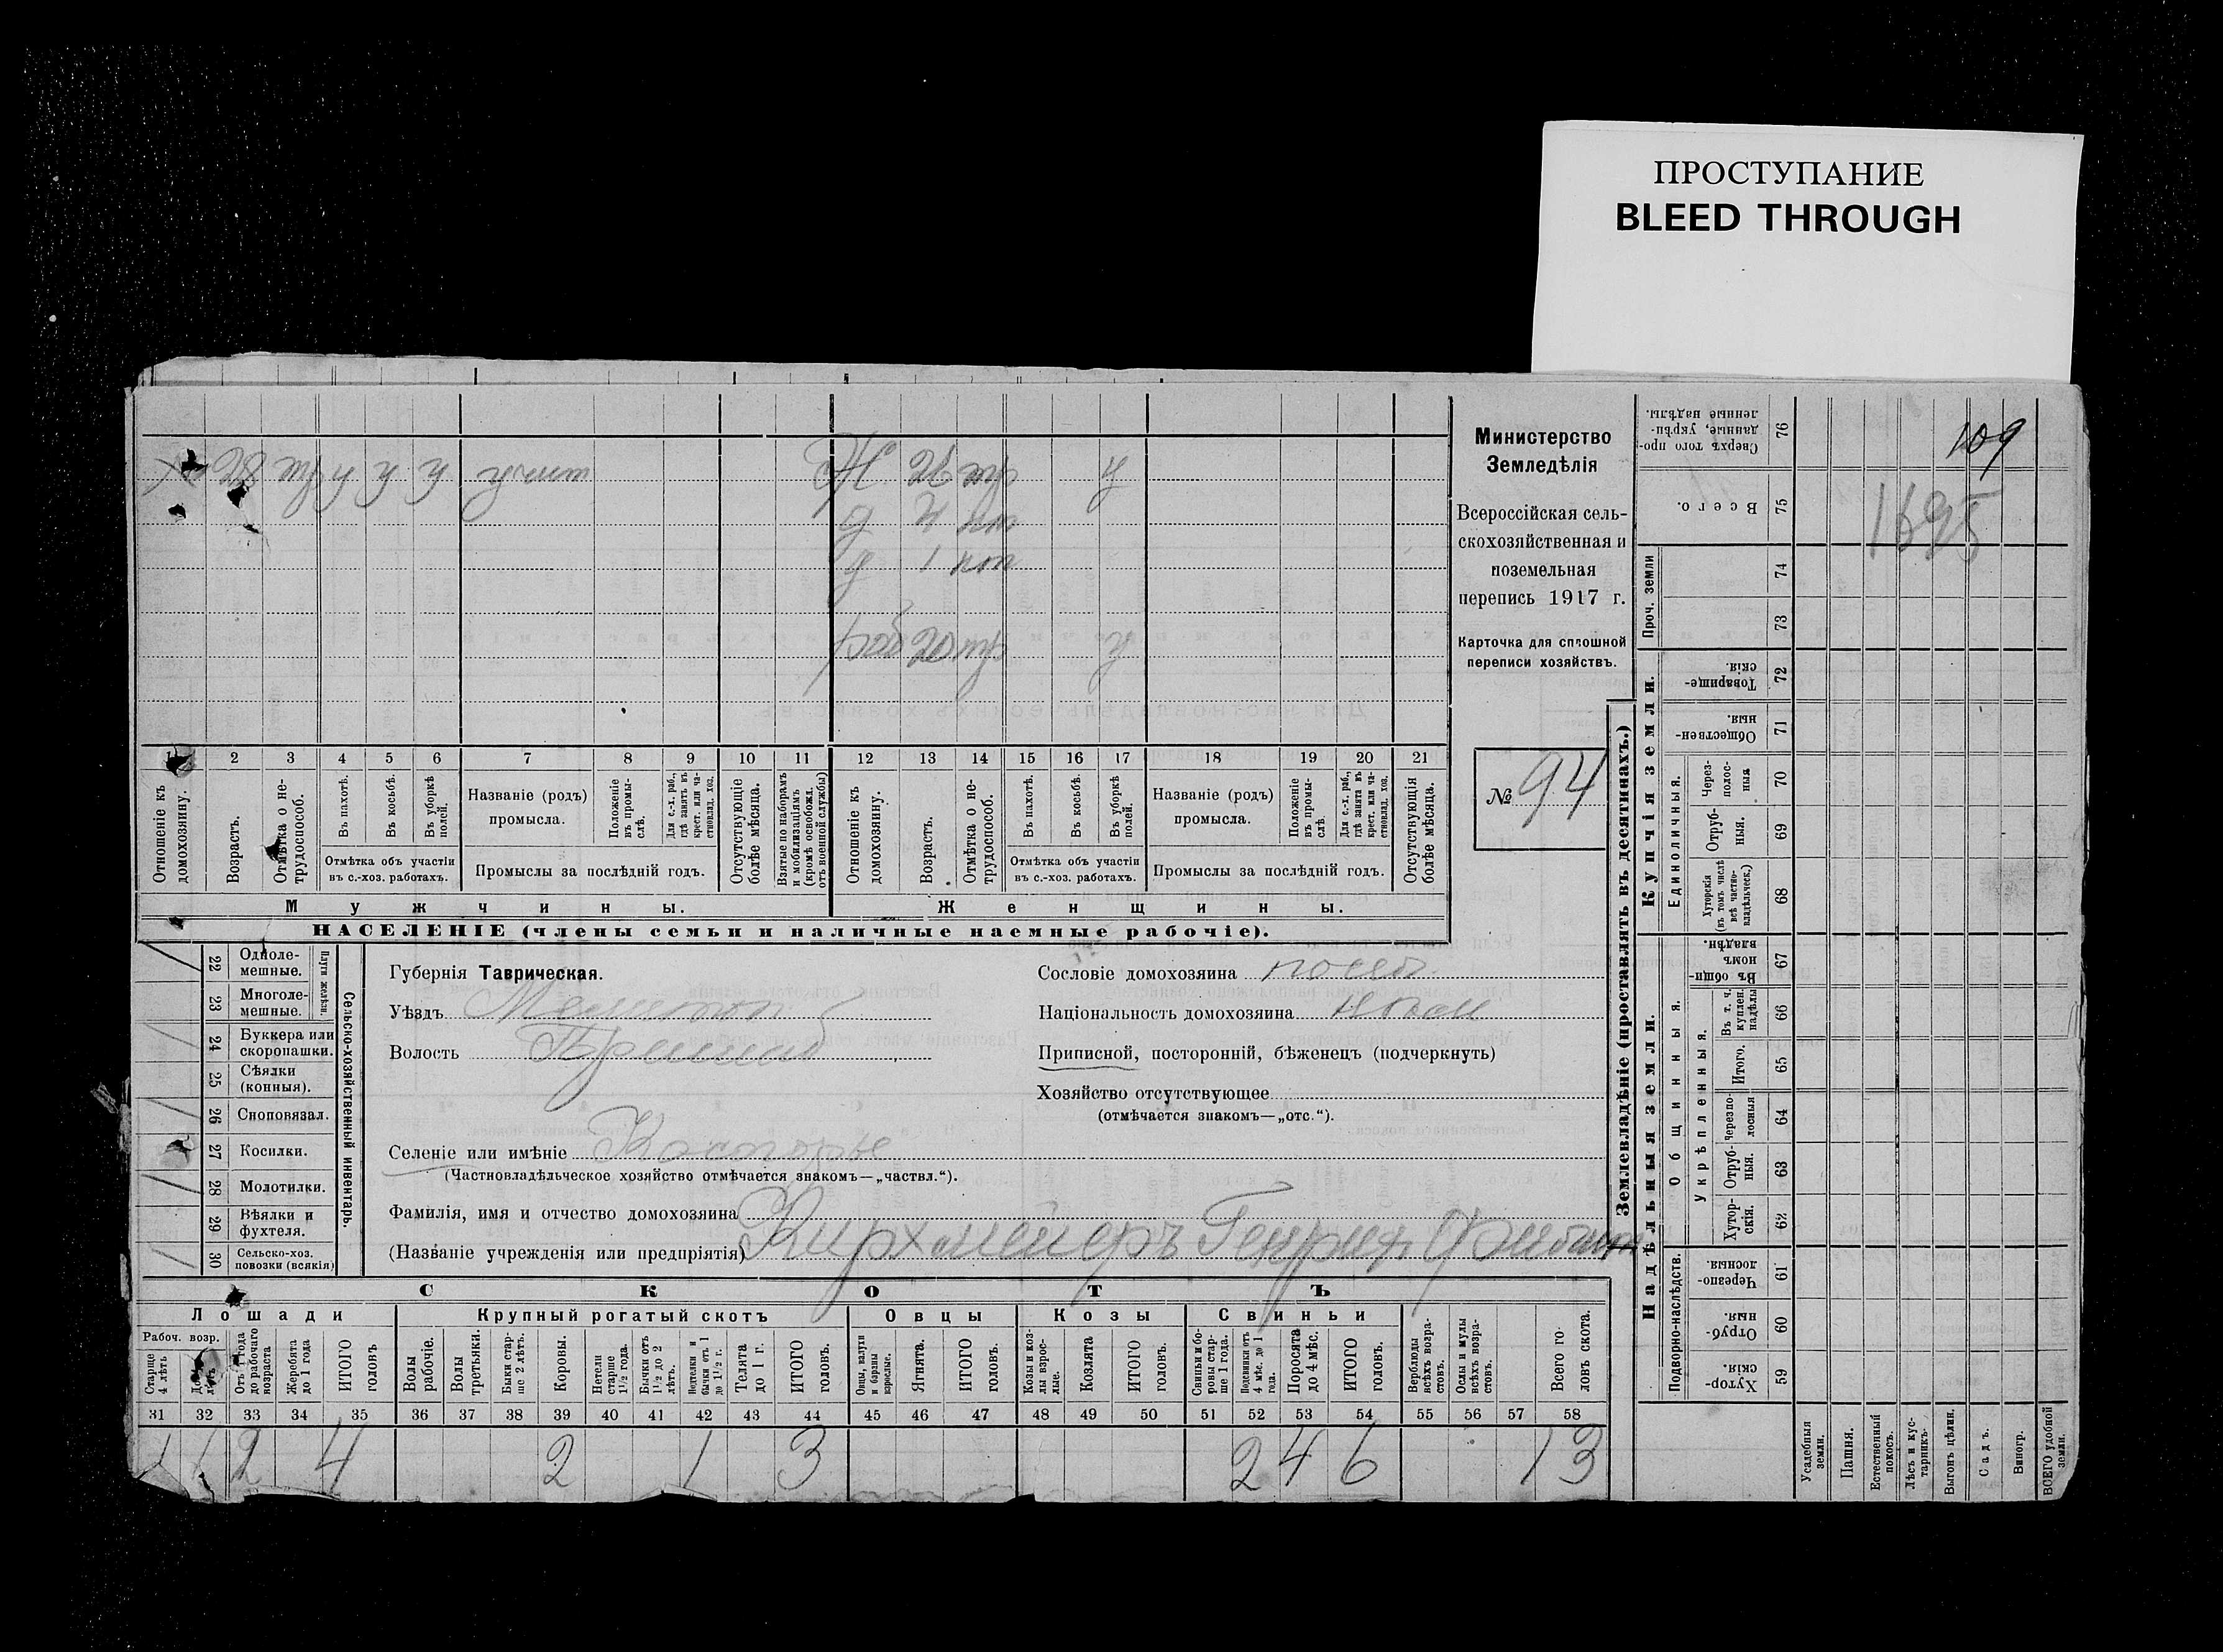 ПРОСТУПАНИЕ
BLEED THROUGH
109
1695
Министерство
Земледѣлія
Всероссійская сель-
скохозяйственная и
поземельная
перепись 1917 г.
Карточка для сплошной
переписи хозяйствъ.
№ 94
1 2 3 4 5 6 7 8 9 10 11 12 13 14 15 16 17 18 19 20 21
Отношеніе къ домохозяину.
Возрастъ.
Отмѣтка о не-трудоспособ.
Въ пахотѣ.
Въ косьбѣ.
Въ уборкѣ полей.
Отмѣтка объ участіи
въ с.-хоз. работахъ.
Названіе (родъ)
промысла.
Положеніе въ промы-слѣ.
Для с.-х. раб., гдѣ занятъ въ крест. или ча-стновлад. хоз.
Промыслы за послѣдній годъ.
Отсутствующіе болѣе мѣсяца.
Взятые по наборамъ и мобилизаціямъ (кромѣ освобожл. отъ военной службы)
Отношеніе къ домохозяину.
Возрастъ.
Отмѣтка о не-трудоспособ.
Въ пахотѣ.
Въ косьбѣ.
Въ уборкѣ полей.
Отмѣтка объ участіи
въ с.-хоз. работахъ.
Названіе (родъ)
промысла.
Положеніе въ промы-слѣ.
Для с.-х. раб., гдѣ занята въ крест. или ча-стновлад. хоз.
Промыслы за послѣдній годъ.
Отсутствующія болѣе мѣсяца.
Мужчины.
Женщины.
НАСЕЛЕНІЕ (члены семьи и наличные наемные рабочіе).
22 Одноле-мешные.
23 Многоле-мешные.
Плуги желѣзн.
24 Буккера или скоропашки.
25 Сѣялки (конныя).
26 Сноповязал.
27 Косилки.
28 Молотилки.
29 Вѣялки и фухтеля.
30 Сельско-хоз. повозки (всякія)
Сельско-хозяйственный инвентарь.
Губернія Таврическая.
Уѣздъ Мелитоп
Волость Пришиб
Селеніе или имѣніе Косогорье
(Частновладѣльческое хозяйство отмѣчается знакомъ—„частвл.“).
Фамилія, имя и отчество домохозяина
(Названіе учрежденія или предпріятія) Кирхмейеръ Генрих
Сословіе домохозяина посел.
Національность домохозяина
Приписной, посторонній, бѣженецъ (подчеркнуть)
Хозяйство отсутствующее
(отмѣчается знакомъ—„отс.“).
СКОТЪ
Лошади
Крупный рогатый скотъ
Овцы
Козы
Свиньи
Рабоч. возр.
Старше 4 лѣтъ
Отъ 1 года до рабочаго возраста
Жеребята до 1 года
ИТОГО головъ
Волы рабочіе.
Волы третьяки.
Быки стар-ше 2 лѣтъ.
Коровы.
Нетели старше 1½ года.
Бычки отъ 1½ до 2 лѣтъ.
Недтелки и бычки отъ 1 до 1½ г.
Телята до 1 г.
ИТОГО головъ.
Овцы, валухи и бараны взрослые.
Ягнята.
ИТОГО головъ.
Козы и коз-лы взрос-лые.
Козлята
ИТОГО головъ.
Свиньи и бо-ровы стар-ше 1 года.
Подсвинки отъ 4 мѣс. до 1 года.
Поросята до 4 мѣс.
ИТОГО головъ.
Верблюды всѣхъ возра-стовъ.
Ослы и мулы всѣхъ возра-стовъ.
Всего го-ловъ скота.
31 32 33 34 35 36 37 38 39 40 41 42 43 44 45 46 47 48 49 50 51 52 53 54 55 56 57 58
1 1 2 4 2 1 3 2 4 6 13
Землевладѣніе (проставлять въ десятинахъ.)
Надѣльныя земли.
Купчія земли.
Проч. земли
Подворно-наслѣдств.
Общинныя.
Укрѣпленныя.
Единоличныя.
76 Сверхъ того про-данные, укрѣп-ленные надѣлы.
75 Всего.
74
73
72 Товарище-скія.
71 Обществен-ныя.
70 Через-полос-ныя
69 Отруб-ныя.
68 Хуторскія (въ томъ числѣ всѣ частно-владѣльческ.)
67 Въ общи-номъ владѣн.
66 Въ т. ч. куплен. надѣлы
65 Итого.
64 Черезпо-лосныя
63 Отруб-ныя.
62 Хутор-скія.
61 Черезпо-лосныя.
60 Отруб-ныя.
59 Хутор-скія.
Усадебныя земли.
Пашня.
Естественный покосъ.
Лѣсъ и кус-тарникъ.
Выгонъ цѣлин.
Садъ.
Виногр.
ВСЕГО удобной земли.